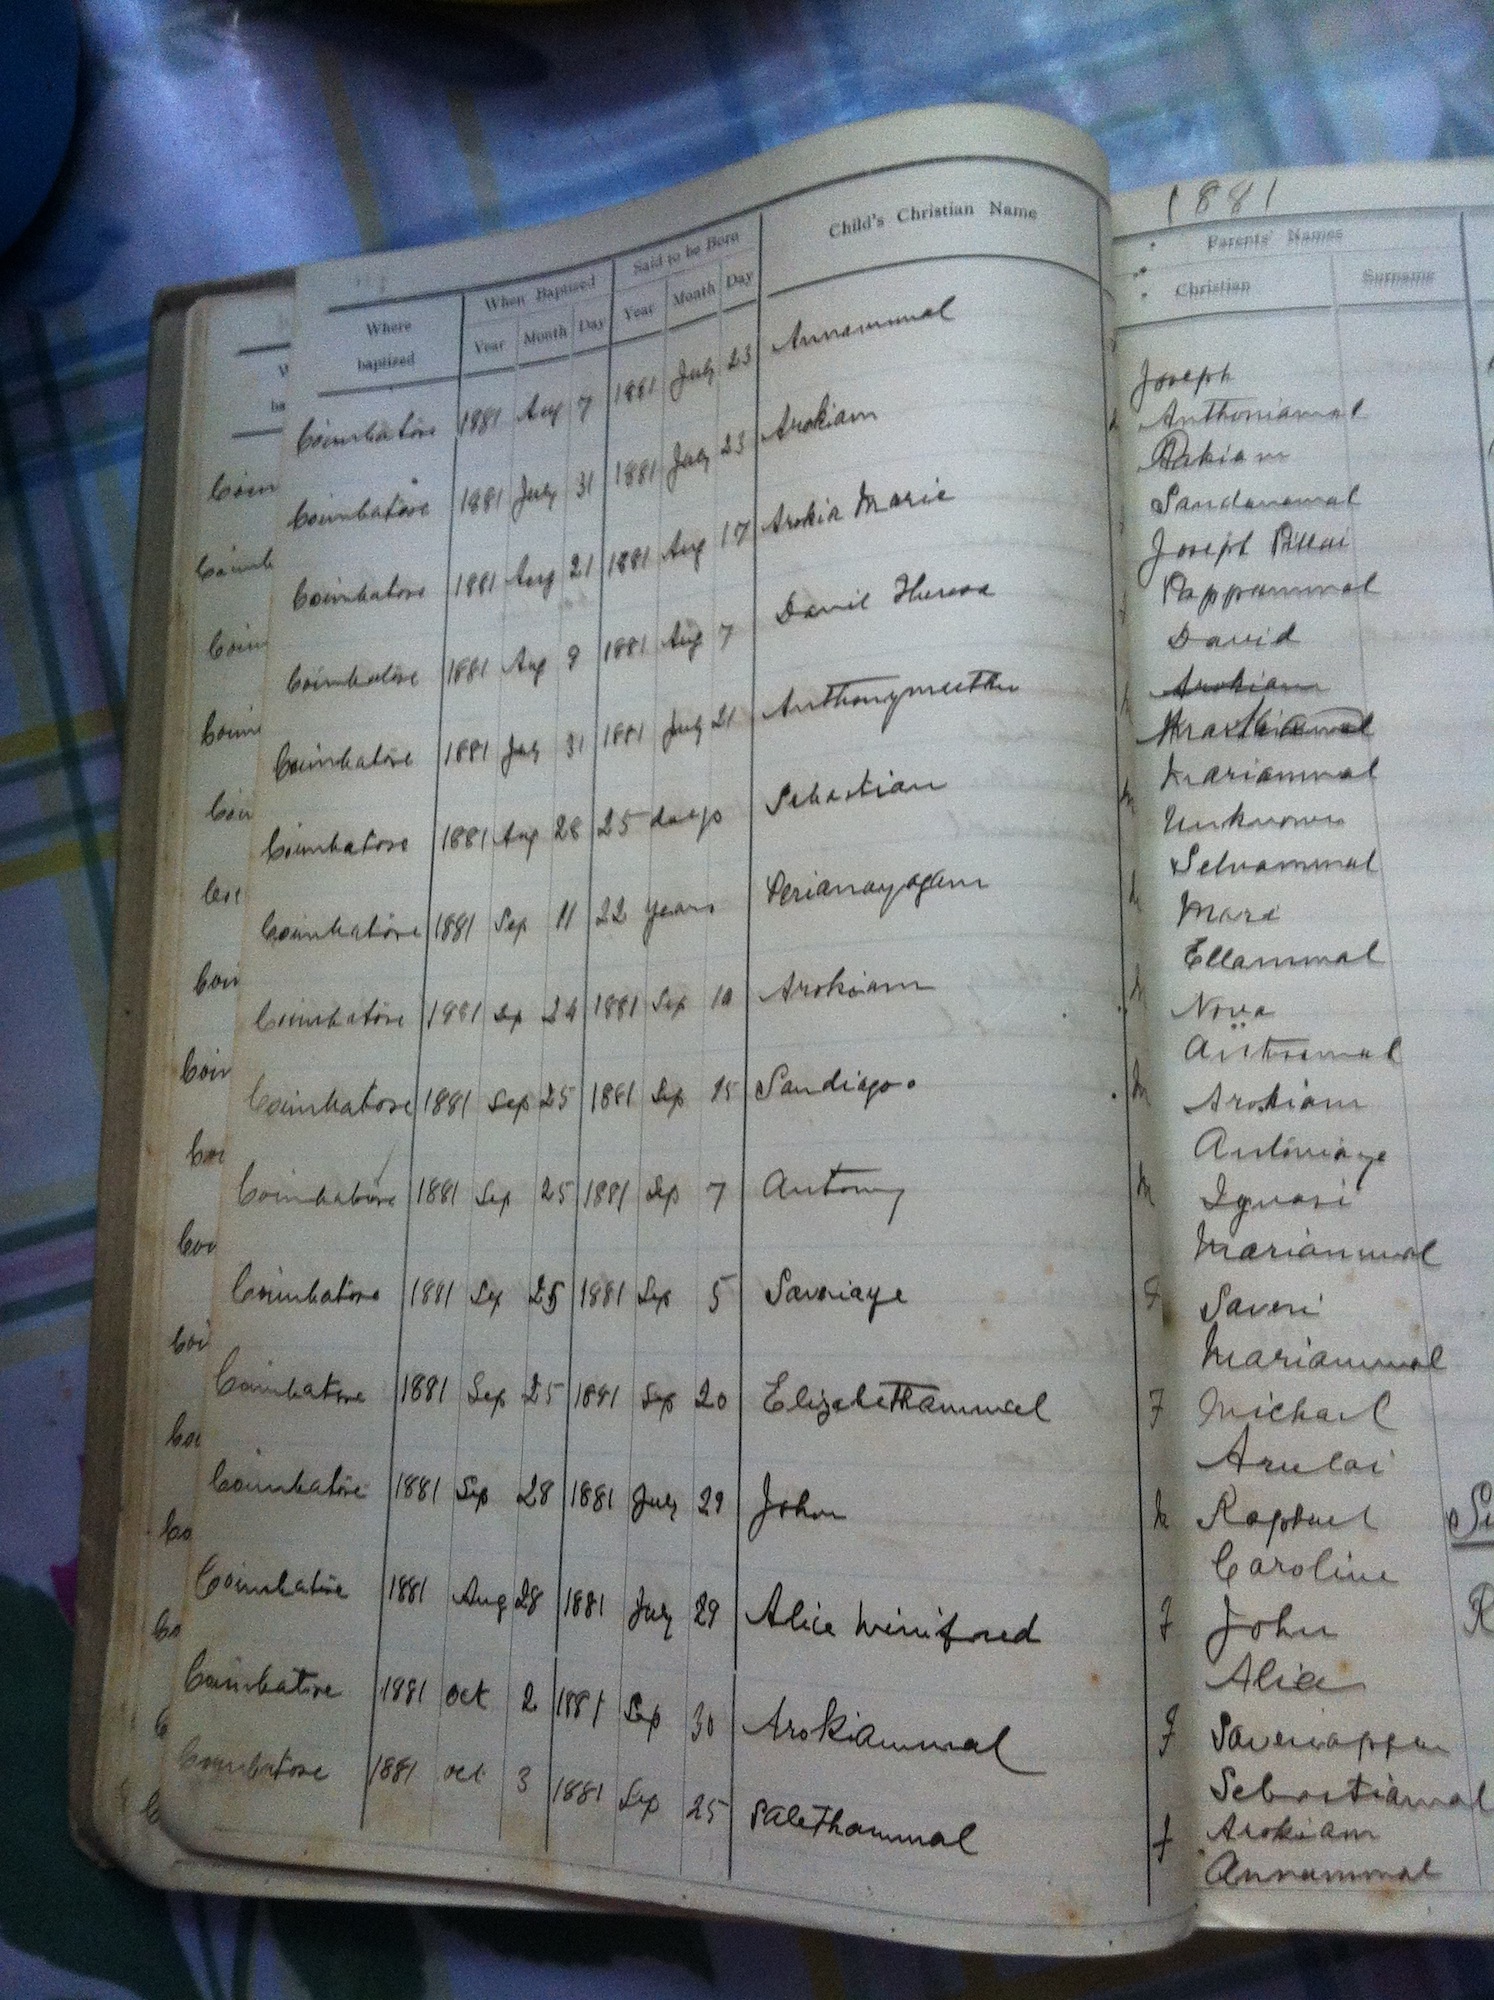 1881
Where baptized
When Baptized
Year Month Day
Said to be Born
Year Month Day
Child's Christian Name
Parents' Names
Christian Surname
Coimbatore 1881 Aug 7 1881 July 23 Annammal
Joseph
Anthoniamal
Coimbatore 1881 July 31 1881 July 23 Arokiam
Pakiam
Sandanamal
Coimbatore 1881 Aug 21 1881 Aug 17 Arokia Marie
Joseph Pillai
Pappammal
Coimbatore 1881 Aug 9 1881 Aug 7 David Theresa
David
Arokiam
Coimbatore 1881 July 31 1881 July 21 Anthonymuthu
Mariammal
Coimbatore 1881 Aug 28 25 days Sebastian
Unknown
Selvammal
Coimbatore 1881 Sep 11 22 years Perianayagam
Mari
Ellammal
Coimbatore 1881 Sep 24 1881 Sep 10 Arokiam
Nova
Coimbatore 1881 Sep 25 1881 Sep 15 Sandiago
M Arokiam
Antoniaye
Coimbatore 1881 Sep 25 1881 Sep 7 Antony
M Ignasi
Mariammal
Coimbatore 1881 Sep 25 1881 Sep 5 Savriaye
F Saveri
Mariammal
Coimbatore 1881 Sep 25 1881 Sep 20 Elizabethammal
F Michael
Arulai
Coimbatore 1881 Sep 28 1881 July 29 John
M Raphael
Caroline
Coimbatore 1881 Aug 28 1881 July 29 Alice Winifred
F John
Alice
Coimbatore 1881 Oct 2 1881 Sep 30 Arokiammal
F Saveriappen
Sebastiamal
Coimbatore 1881 Oct 3 1881 Sep 25 Salethammal
F Arokiam
Annammal